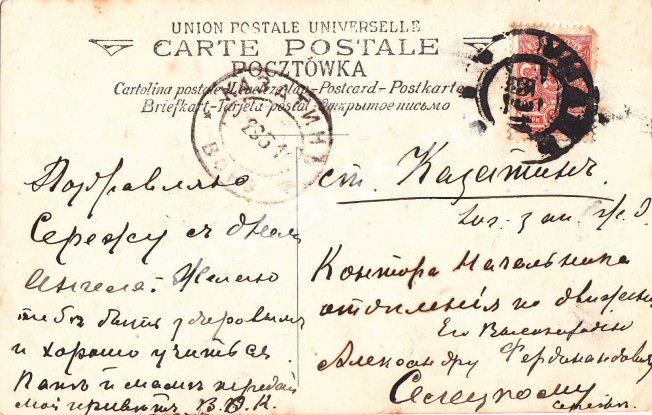 UNION POSTALE UNIVERSELLE
CARTE POSTALE
POCZTÓWKA
Cartolina postale-Levelezö-lap-Postcard-Postkarte
Briefkart-Tarjeta postal-Открытое письмо
КАЗАТИНЪ
Поздравляю
Сережу съ днемъ
Ангела. Желаю
тебѣ быть здоровымъ
и хорошо учиться.
Папѣ и мамѣ передай
мой привѣтъ. В.В.К.
ст. Казатинъ.
Юго-зап. ж.д.
Контора Начальника
отдѣленія по движенію
Его Высокородію
Александру Фердинандовичу